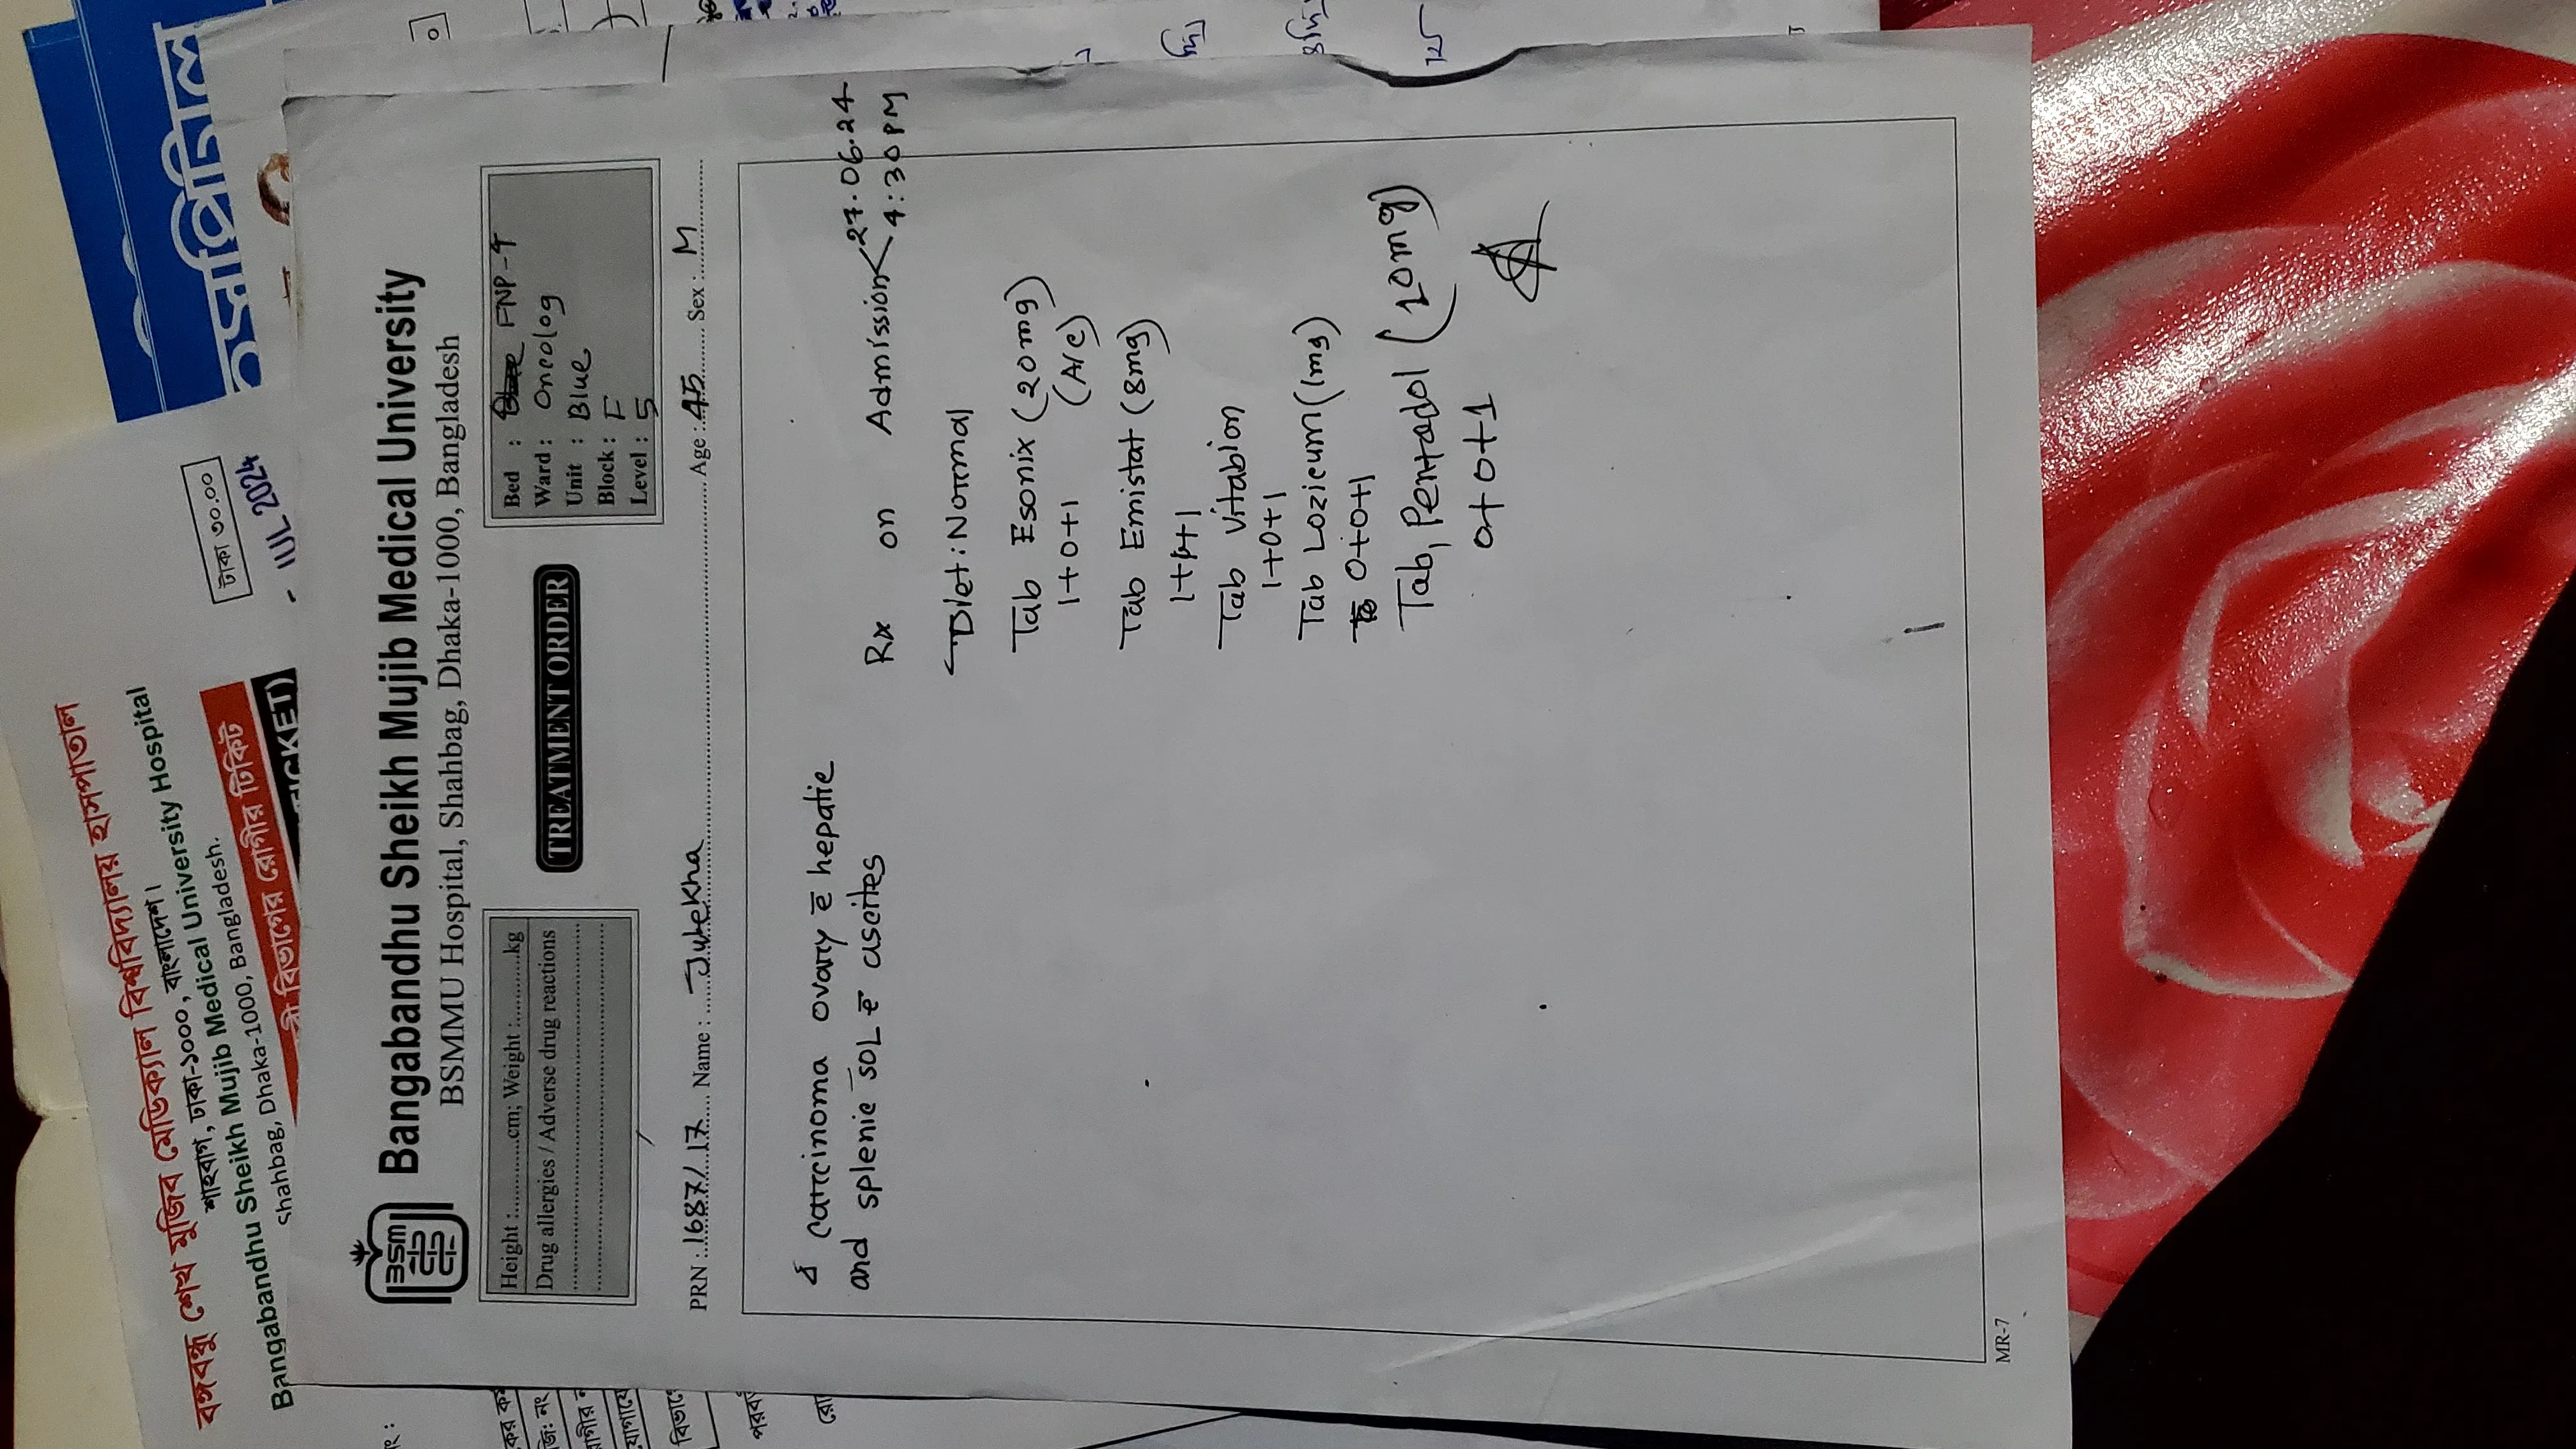 বঙ্গবন্ধু শেখ মুজিব মেডিক্যাল বিশ্ববিদ্যালয় হাসপাতাল
শাহবাগ, ঢাকা-১০০০, বাংলাদেশ।
Bangabandhu Sheikh Mujib Medical University Hospital
Shahbag, Dhaka-1000, Bangladesh.
বিভাগের রোগীর টিকিট
টাকা ৩০.০০
JUL 2024
Bangabandhu Sheikh Mujib Medical University
BSMMU Hospital, Shahbag, Dhaka-1000, Bangladesh
Height :............cm; Weight :............kg
Drug allergies / Adverse drug reactions
TREATMENT ORDER
Bed : FNP-4
Ward : Oncolog
Unit : Blue
Block : F
Level : 5
PRN : 1687/17 Name : Julekha Age : 45 Sex : M
Carcinoma ovary c̄ hepatic
and splenic SOL c̄ ascites
Rx on Admission 27.06.24
4:30 PM
Diet: Normal
Tab Esonix (20mg)
1+0+1 (A/C)
Tab Emistat (8mg)
1+1+1
Tab Vitabion
1+0+1
Tab Lozicum (1mg)
0+0+1
Tab, Pentadol (10mg)
0+0+1
MR-7